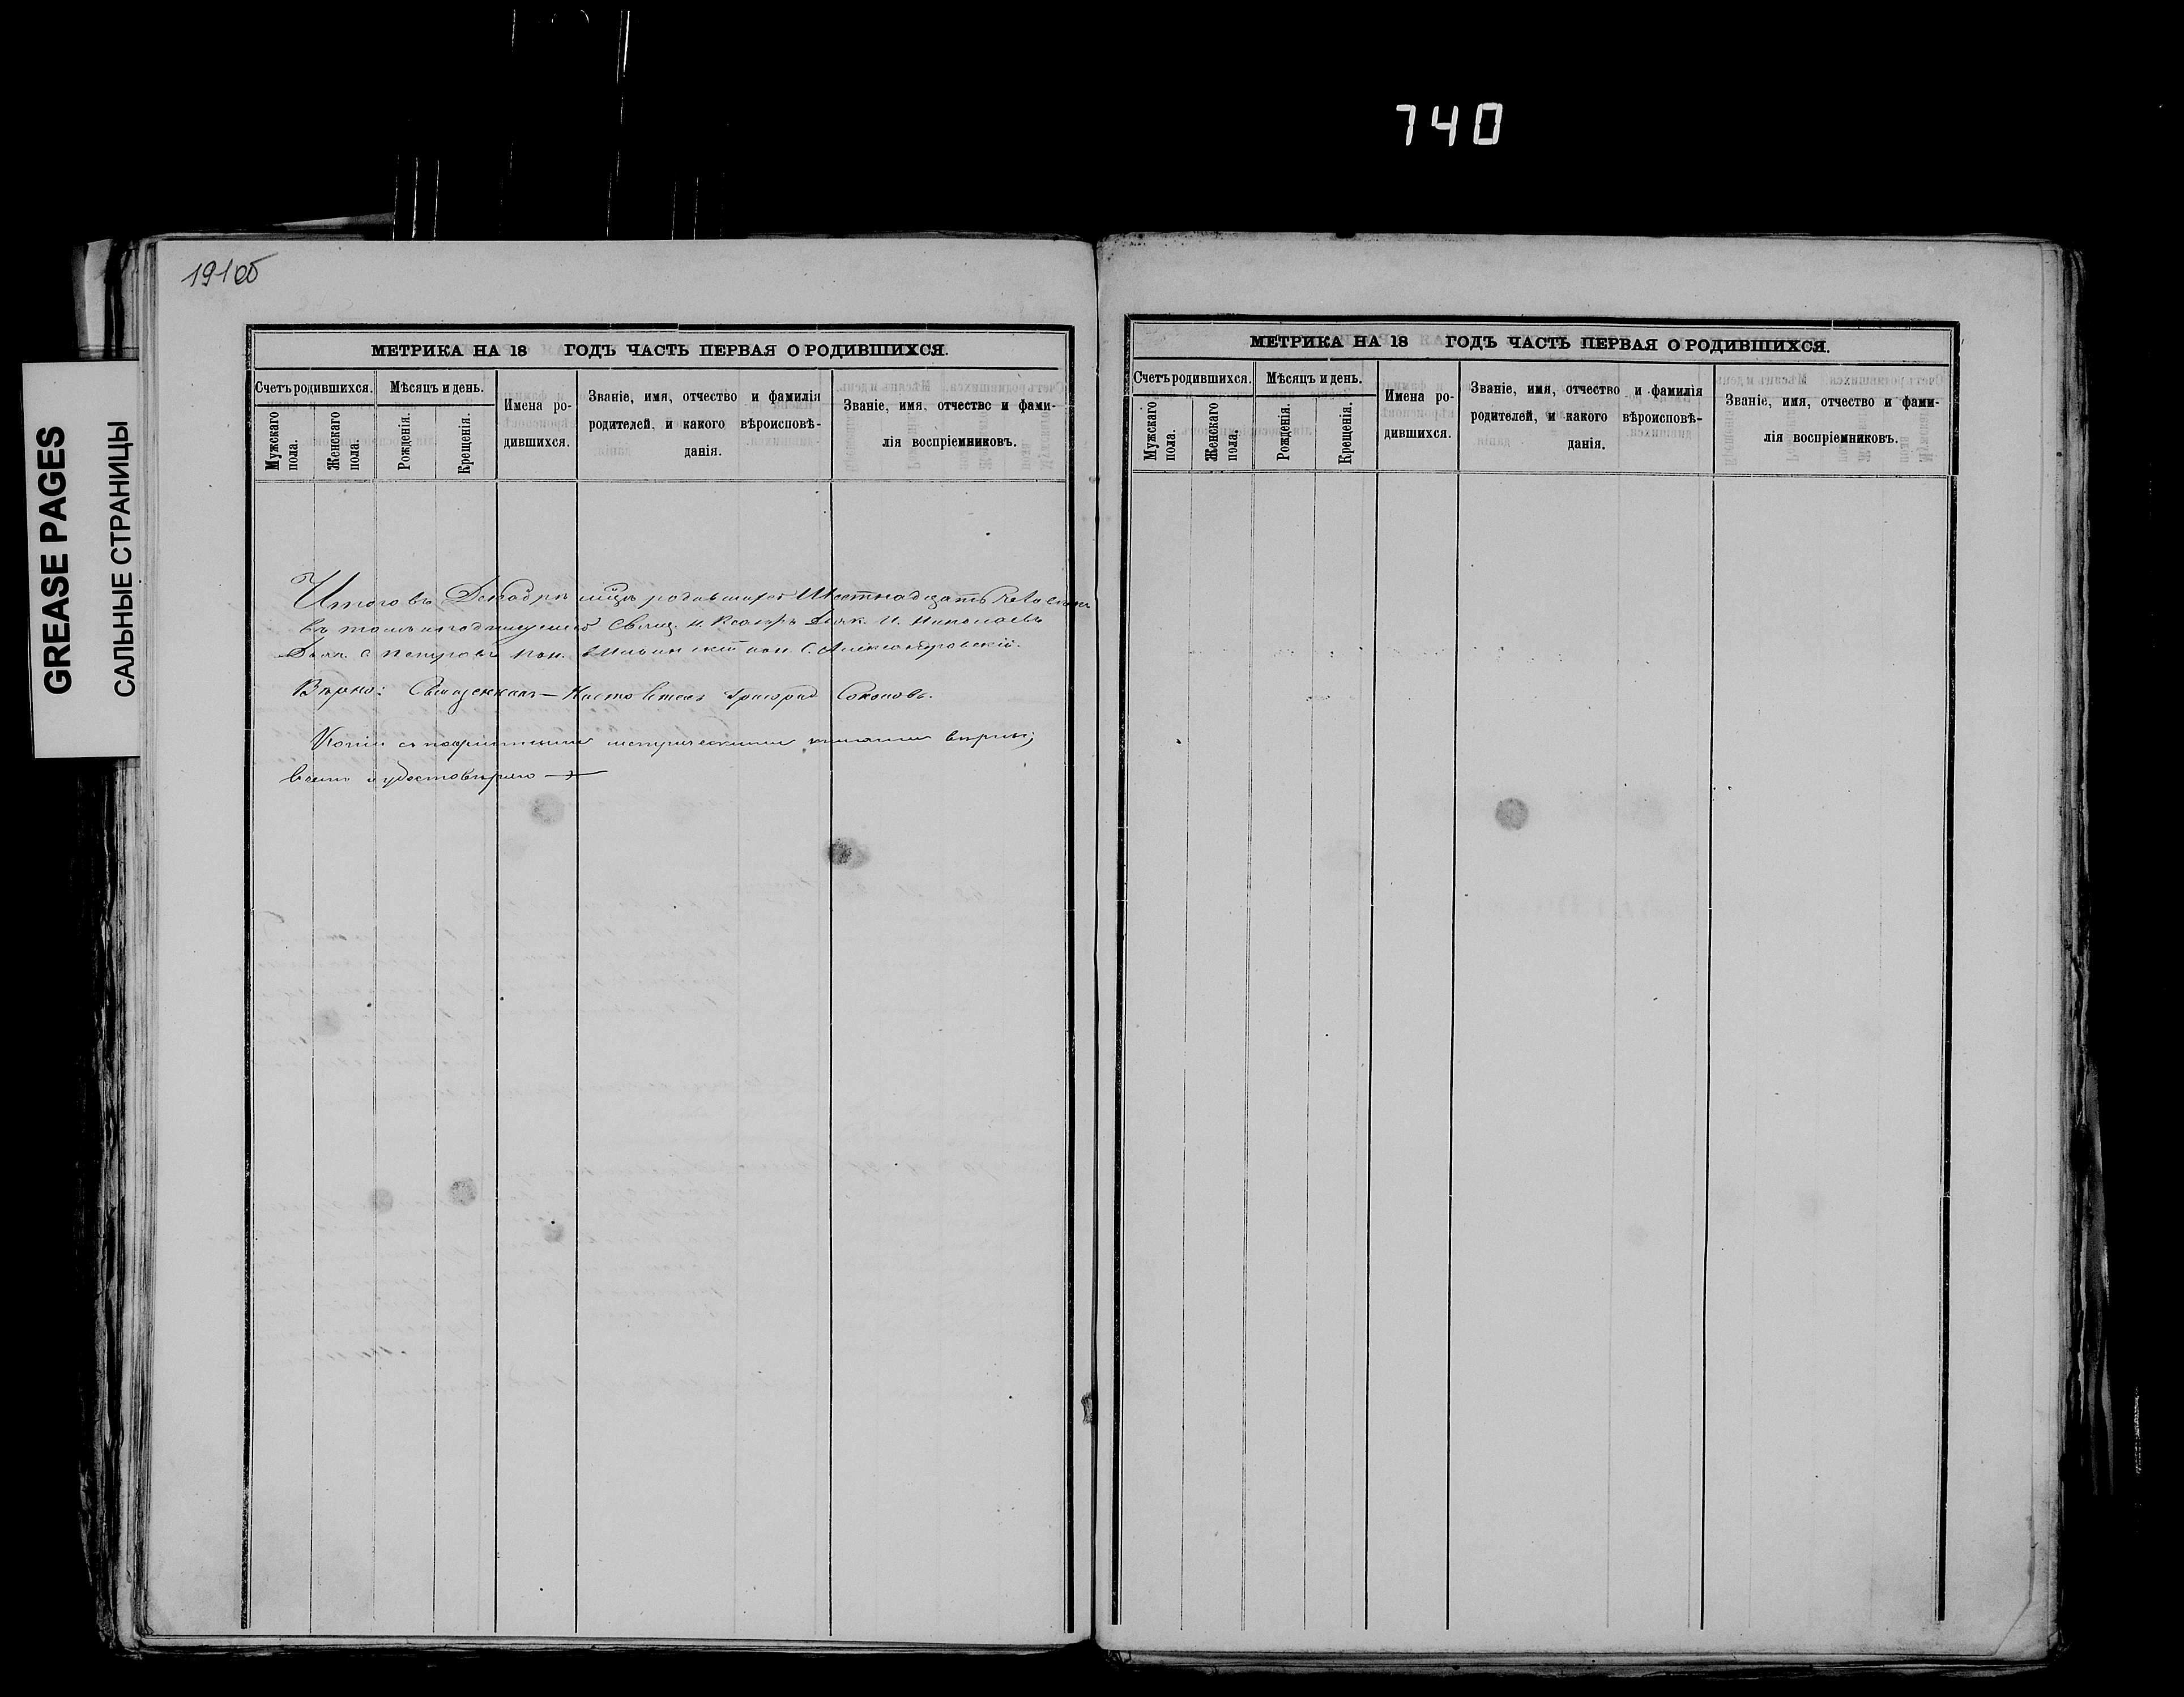 740
191об
GREASE PAGES
САЛЬНЫЕ СТРАНИЦЫ
МЕТРИКА НА 18 ГОДЪ ЧАСТЬ ПЕРВАЯ О РОДИВШИХСЯ.
Счетъ родившихся.
Мужскаго пола.
Женскаго пола.
Мѣсяцъ и день.
Рожденія.
Крещенія.
Имена ро-
дившихся.
Званіе, имя, отчество и фамилія
родителей, и какого вѣроисповѣ-
данія.
Званіе, имя, отчество и фами-
лія воспріемниковъ.
Итого въ Декабрѣ м͠цѣ родившихся Шестнадцать человѣкъ
въ томъ и подписуемся Свящ. Діак. И. Николаевъ
Діак. С. Петровъ Пон. Ильинскій пон. С. Александровскій.
Вѣрно: Священникъ – Настоятель Григорій Соколовъ.
Копіи съ подлинными метрическими книгами вѣрны;
въ чемъ и удостовѣряю
МЕТРИКА НА 18 ГОДЪ ЧАСТЬ ПЕРВАЯ О РОДИВШИХСЯ.
Счетъ родившихся.
Мужскаго пола.
Женскаго пола.
Мѣсяцъ и день.
Рожденія.
Крещенія.
Имена ро-
дившихся.
Званіе, имя, отчество и фамилія
родителей, и какого вѣроисповѣ-
данія.
Званіе, имя, отчество и фами-
лія воспріемниковъ.